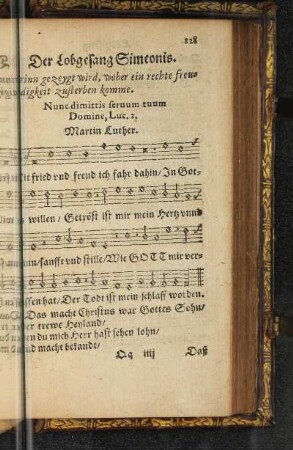 128
Der Lobgesang Simeonis.
rinn gezeygt wird, woher ein rechte freu-
digkeit zusterben komme.
Nunc dimittis seruum tuum
Domine, Luc. 2.
Martin Luther.
Mit fried vnd freud ich fahr dahin/ In Got-
tes willen/ Getröst ist mir mein Hertz vnnd
sinn/ sanfft vnd stille/ Wie GOTT mir ver-
heissen hat/ Der Todt ist mein schlaff worden.
Das macht Christus war Gottes Sohn/
der trewe Heyland/
den du mich Herr hast sehen lohn/
vnd macht bekandt/
Qq iiij Daß